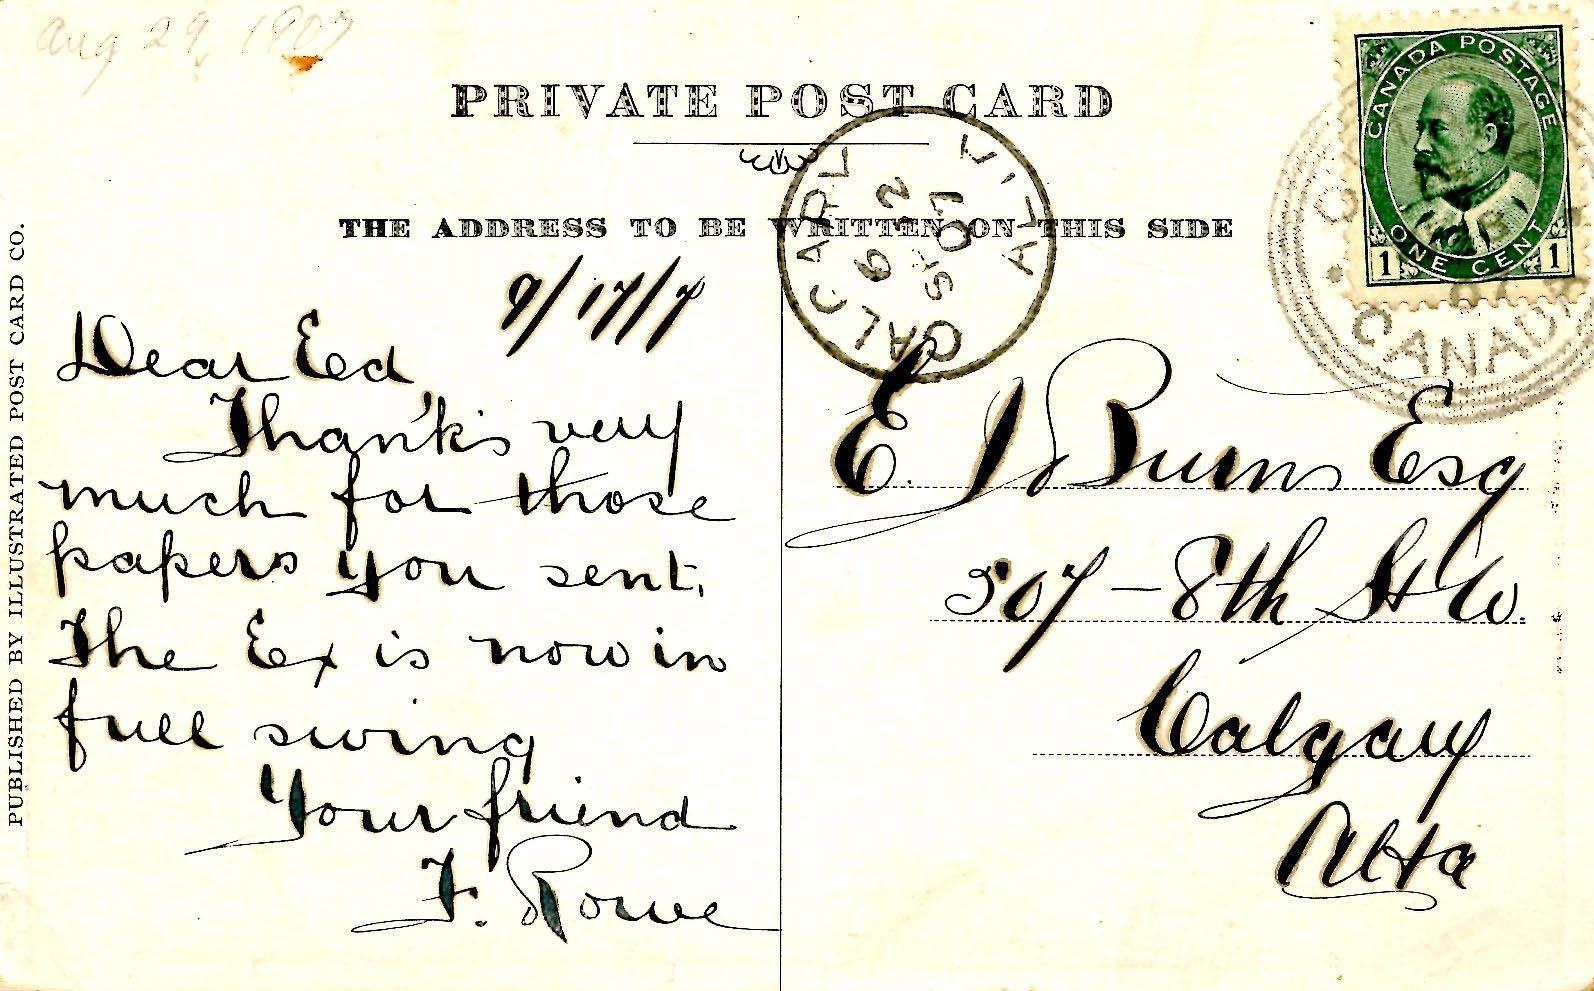 Aug 29, 1907
PRIVATE POST CARD
THE ADDRESS TO BE WRITTEN ON THIS SIDE
PUBLISHED BY ILLUSTRATED POST CARD CO.
CANADA POSTAGE
ONE CENT
1 1
CANADA
CALGARY
ALTA
07
9/17/7
Dear Ed,
Thanks very
much for those
papers you sent.
The Ex is now in
full swing
Your friend
F. Rowe
E. J Burns Esq
507-8th St W.
Calgary
Alta